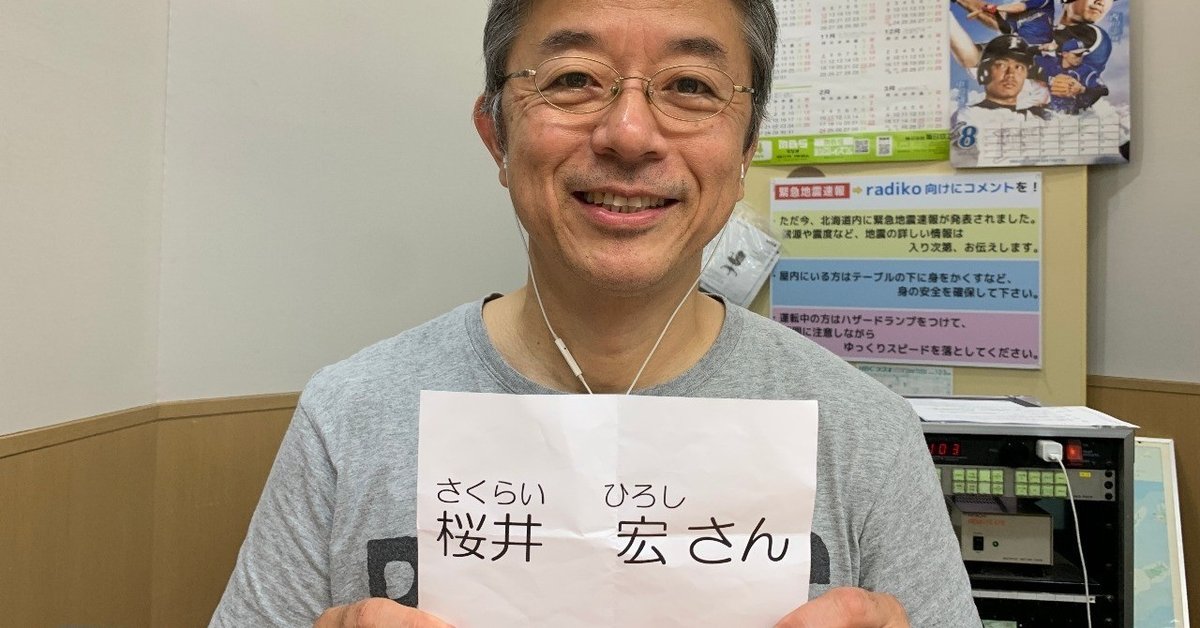 11月
12月
2月
3月
8
緊急地震速報 ➡ radiko 向けにコメントを！
・ただ今、北海道内に緊急地震速報が発表されました。
源や震度など、地震の詳しい情報は
入り次第、お伝えします。
・屋内にいる方はテーブルの下に身をかくすなど、
身の安全を確保して下さい。
・運転中の方はハザードランプをつけて、
に注意しながら
ゆっくりスピードを落としてください。
さくらい ひろし
桜井 宏さん
103